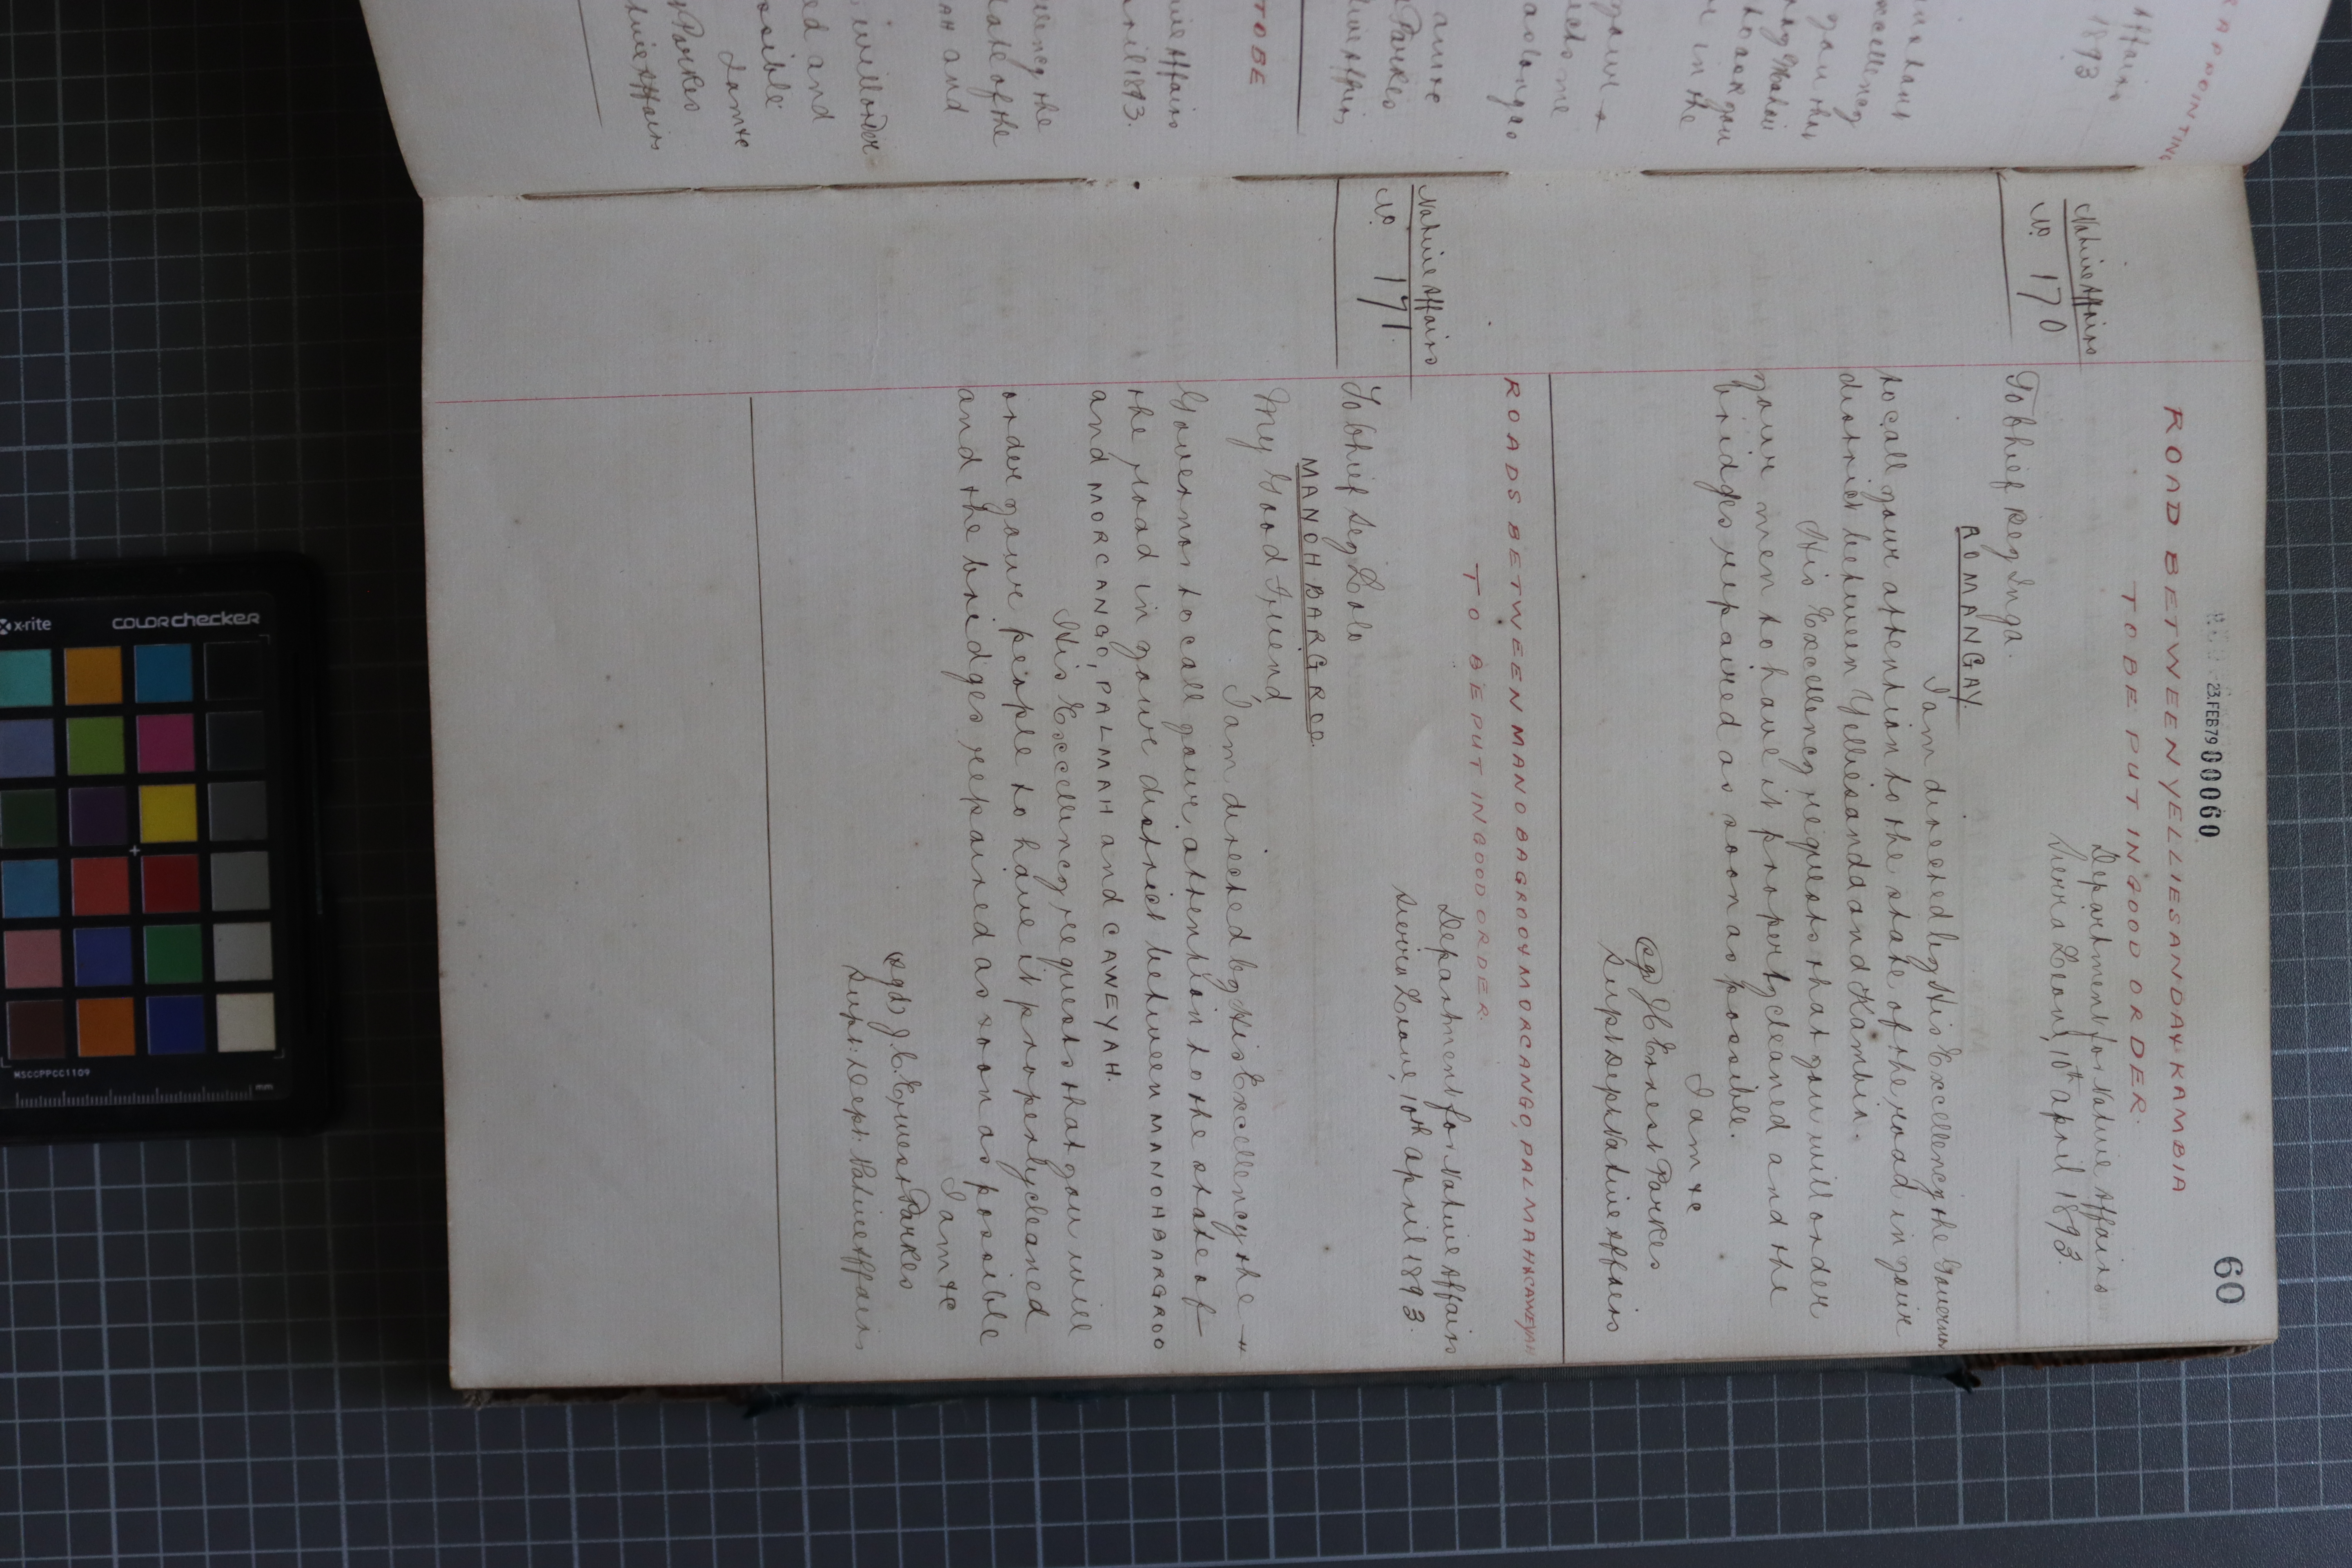 23.FEB79 00060
60
ROAD BETWEEN YELLIESANDA & KAMBIA
TO BE PUT IN GOOD ORDER.
Native Affairs
No. 170
Department for Native Affairs
Sierra Leone, 10th April 1893.
To Chief Beg Inga.
ROMANGAY.
I am directed by His Excellency the Governor
to call your attention to the state of the road in your
district between Yelliesandda and Kambia.
His Excellency requests that you will order
your men to have it properly cleaned and the
bridges repaired as soon as possible.
I am &c
(sgd) J C Ernest Parkes
Supt Dept Native Affairs
ROADS BETWEEN MANO BAGROO & MORCANGO, PALMAH & CAWEYAH
TO BE PUT IN GOOD ORDER.
Native Affairs
No. 171.
Department for Native Affairs
Sierra Leone, 10th April 1893.
To Chief Seg Lolo
MANOH BARGROO.
My Good Friend
I am directed by His Excellency the
Governor to call your attention to the state of
the road in your district between MANOH BARGROO
and MORCANGO, PALMAH and CAWEYAH.
His Excellency requests that you will
order your people to have it properly cleaned
and the bridges repaired as soon as possible
I am &c
(sgd) J. C. Ernest Parkes
Supt: Dept: Native Affairs
Affairs
1893
TO BE
Native Affairs
April 1893.
the
state of the
and
will order
and
possible
I am &c
Parkes
Native Affairs
x-rite
colorchecker
MSCCPPCC1109
mm